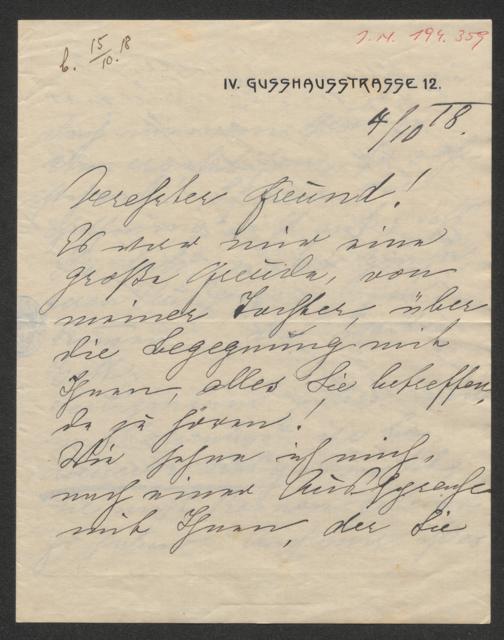 b. 15/10. 18
J. N. 194.359
IV. GUSSHAUSSTRASSE 12.
4/10 18.
Verehrter Freund!
Es war mir eine
große Freude, von
meiner Tochter, über
die Begegnung mit
Ihnen, alles Sie betreffen,
de zu hören!
Wie sehne ich mich,
nach einer Aussprache
mit Ihnen, der Sie